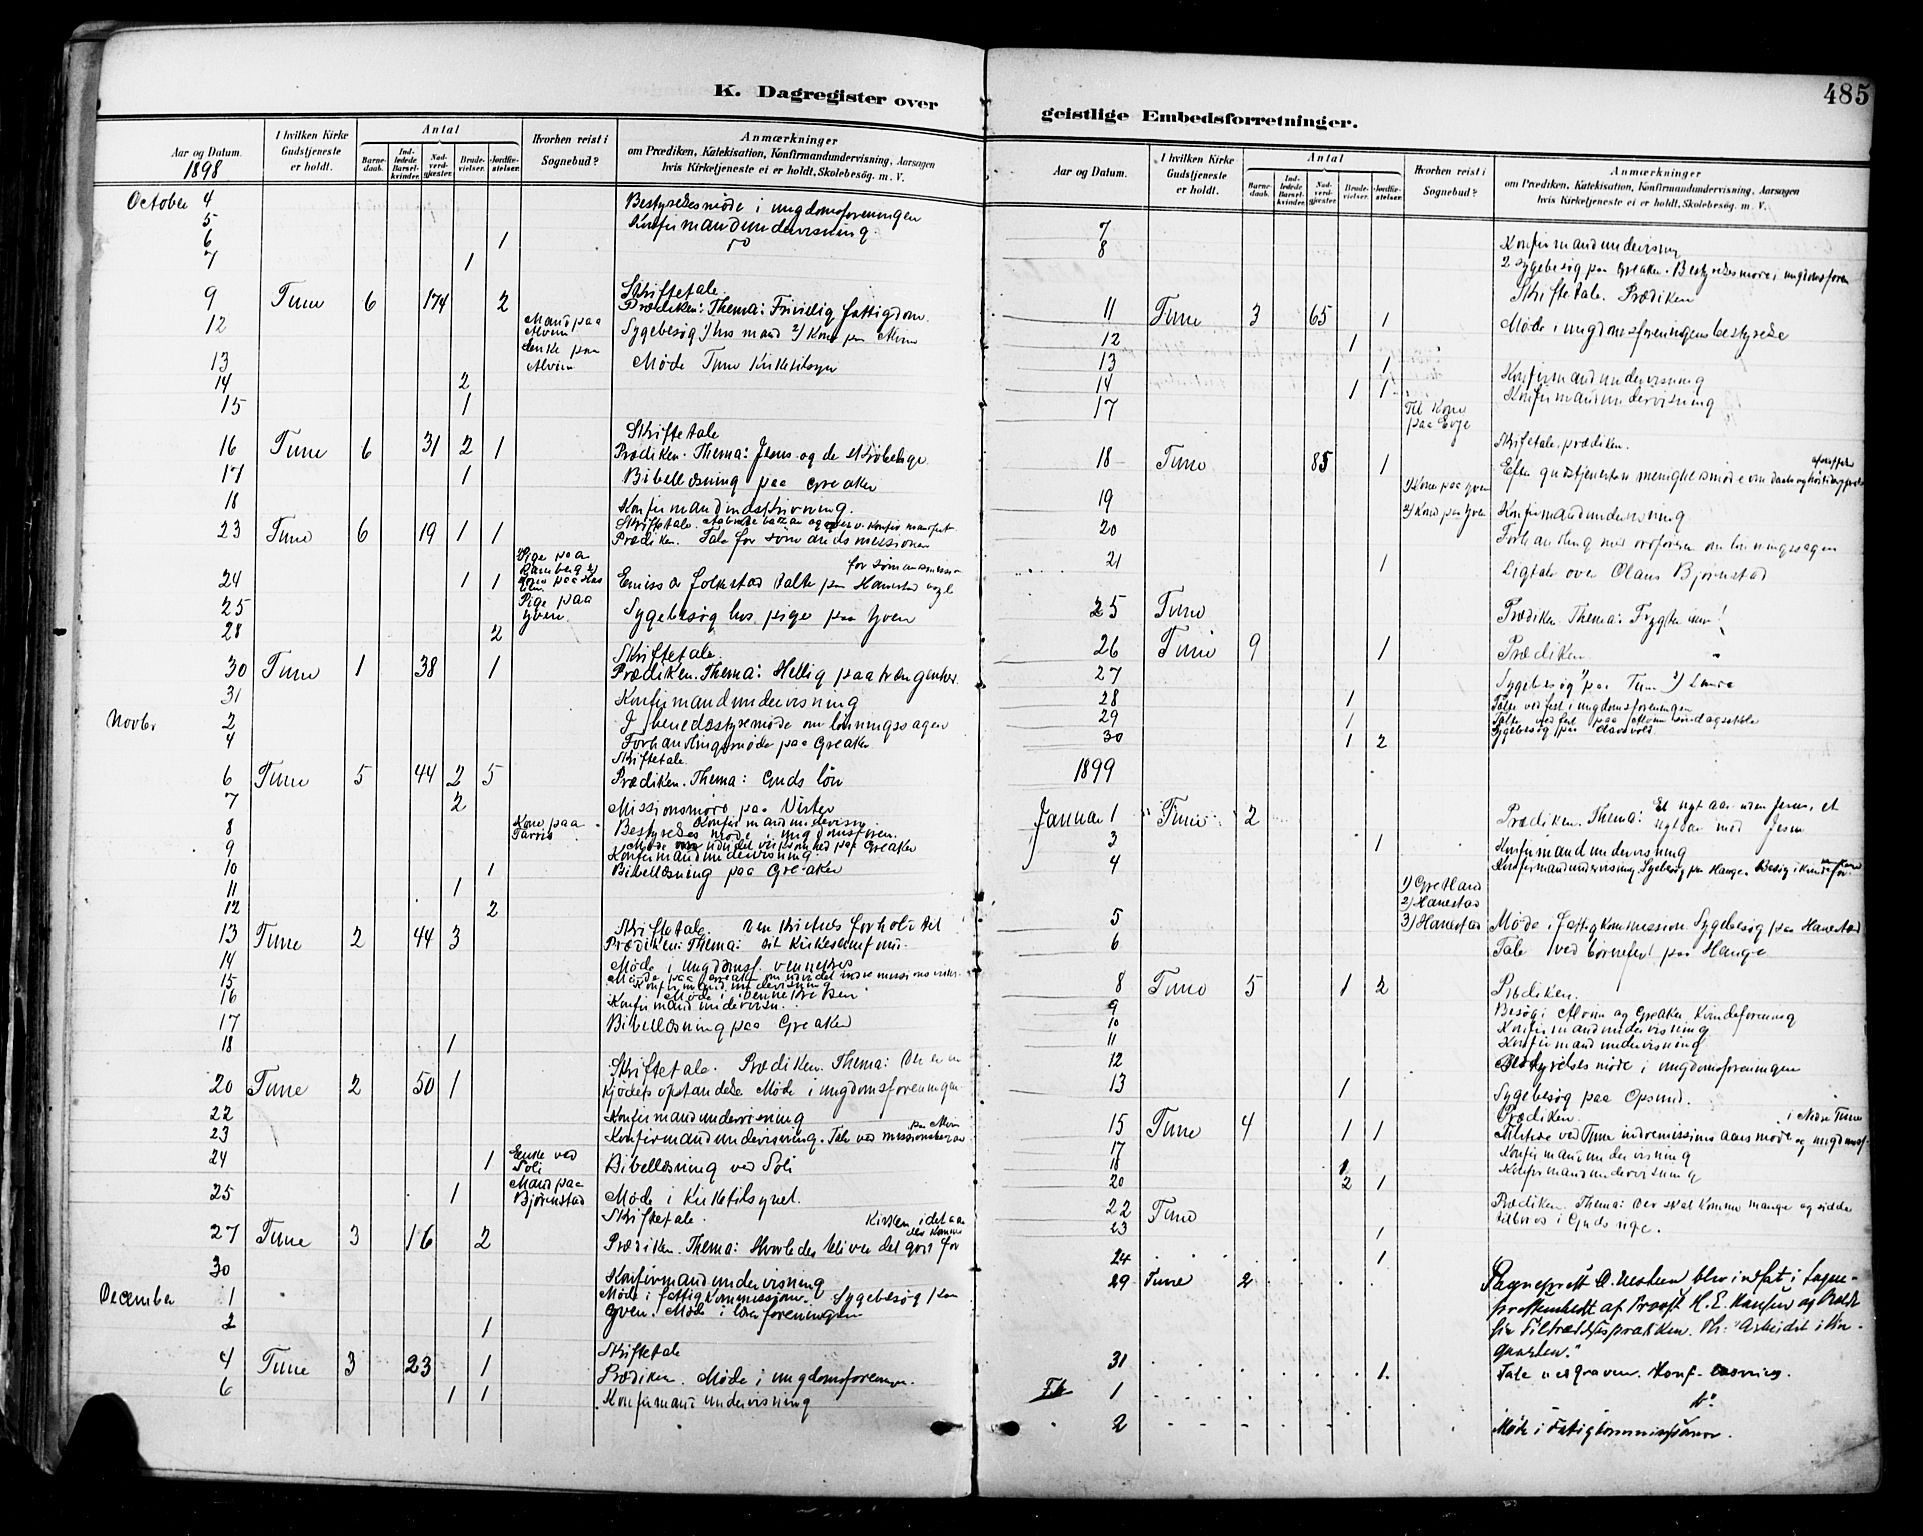 K. Dagregister over
geistlige Embedsforretninger.
485
Aar og Datum.
1898
I hvilken Kirke Gudstjeneste er holdt.
Antal
Barnedaab.
Indledede Barselkvinder.
Nadverdgjæster.
Brudevielser.
Jordfæstelser.
Hvorhen reist i Sognebud?
Anmærkninger
om Prædiken, Katekisation, Konfirmandundervisning, Aarsagen
hvis Kirketjeneste ei er holdt, Skolebesøg. m. V.
October 4 Bestyrelsesmøde i ungdomsforeningen
5 Konfirmandundervisning
6 1 do
7 1
9 Tune 6 174 2 Skriftetale.
Prædiken: Thema: Frivillig fattigdom.
12 Mand paa Alvim Enke paa Alvim Sygebesøg 1) hos mand 2) Kone paa Alvim
13 Møde Tune Kirketilsyn
14 2
15 1
16 Tune 6 31 2 1 Skriftetale
Prædiken. Thema: Jesus og de
17 1 Bibellæsning paa Greaker
18 Konfirmandindskrivning.
23 Tune 6 19 1 1 Skriftetale.
Prædiken. Tale for sømandsmissionen
24 1 1 Pige paa Kone paa Emissær Folkestad talte paa Hanestad
for sømandsmission
25 Pige paa Yven Sygebesøg hos pige paa Yven
28 2
30 Tune 1 38 1 Skriftetale.
Prædiken. Thema: Hellig paatrængenhed.
31 Konfirmandundervisning
Novbr 2 I herredsstyremøde om lønningssagen
4 Forhandlingsmøde paa Greaker
6 Tune 5 44 2 5 Skriftetale.
Prædiken. Thema: Guds løn
7 2 Missionsmøde paa Vister
8 Kone paa Konfirmandundervisn.
Bestyrelses møde i ungdomsforen.
9 Møde virksomhed paa Greaker
Konfirmandundervisning.
10 1 Bibellæsning paa Greaker
11 1
12 2
13 Tune 2 44 3 Skriftetale. Den kristnes forhold til
Prædiken: Thema: sit kirkesamfund.
14 Møde i ungdomsf.
15 Møde paa Greaker
Konfirmandundervisning
16 Konfirmandundervisn.
17 Bibellæsning paa Greaker
18 1
20 Tune 2 50 1 Skriftetale. Prædiken. Thema: Der er en
Kjødets opstandelse Møde i ungdomsforeningen
22 Konfirmandundervisning
23 Konfirmandundervisning. Tale ved
24 1 Enke ved Soli Bibellæsning ved Soli
25 1 Mand paa Bjørnstad Møde i Kirketilsynet.
27 Tune 3 16 2 Skriftetale.
Prædiken. Thema: Hvorledes bliver det godt for
Kirken i det aar der kommer
30 Konfirmandundervisning
December 1 Møde i fattigkommissionen. Sygebesøg paa
Yven. Møde i
2 1
4 Tune 3 23 1 Skriftetale
Prædiken. Møde i ungdomsforenin.
6 1 1 Konfirmandundervisning
Aar og Datum.
I hvilken Kirke Gudstjeneste er holdt.
Antal
Barnedaab.
Indledede Barselkvinder.
Nadverdgjæster.
Brudevielser.
Jordfæstelser.
Hvorhen reist i Sognebud?
Anmærkninger
om Prædiken, Katekisation, Konfirmandundervisning, Aarsagen
hvis Kirketjeneste ei er holdt, Skolebesøg. m. V.
7 Konfirmandundervisning
8 2 Sygebesøg paa Greaker. Bestyrelsesmøde i ungdomsforen
11 Tune 3 65 1 Skriftetale. Prædiken
Møde i ungdomsforeningens bestyrelse
12 1
13 1 Konfirmandundervisning
14 1 1 Konfirmandundervisning
17 Til Kone paa Evje
18 Tune 85 1 Skriftetale. prædiken.
Efter gudstjenesten menighedsmøde om
19 1) Kone paa Yven 2) Kone paa Yven Konfirmandundervisning
20 Forhandling med ordføreren om lønningssagen
21 1 Ligtale over Olaus Bjørnstad
25 Tune Prædiken Thema: Frygter ikke!
26 Tune 9 1 Prædiken
27 Sygebesøg 1) paa Tune 2)
28 1 Tale ved fest i ungdomsforeningen
29 1 Talte ved fest paa Alvim søndagsskole
30 1 2 Sygebesøg paa
1899
Januar 1 Tune 2 Prædiken. Thema: Et nyt aar uden Jesus, et
nyt aar med Jesus
3 1 Konfirmandundervisning
4 Konfirmandundervisning. Sygebesøg paa Hauge. Besøg i kvindefor
5 1) Gretland 2) Hanestad 3) Hanestad Møde i fattigkommission. Sygebesøg paa Hanestad
6 Tale ved børnefest paa Hauge
8 Tune 5 1 2 Prædiken.
9 Besøg i Alvim og Greaker Kvindeforening
10 Konfirmandundervisning
11 Konfirmandundervisning
12 Bestyrelses møde i ungdomsforeningen
13 1 Sygebesøg paa Opsund.
15 Tune 4 1 1 Prædiken. i Nedre Tune
ved Tune indremissions aarsmøde og ungdomsf.
17 Konfirmandundervisning
18 1 Konfirmandundervisning
20 2 1
22 Tune Prædiken. Thema: Der skal komme mange og sidde
tilbords i Guds rige.
23 1
24 1
29 Tune 2 Sogneprest blev indsat i Sogne-
prestembedet af Provst H. E. Hansen og holdt
sin Tiltrædelsespræken. Th: "Arbeidet i Vin-
gaarden."
31 1 Tale ved graven. Konf.
Feb 1 do
2 Møde i Fattigkommissionen.